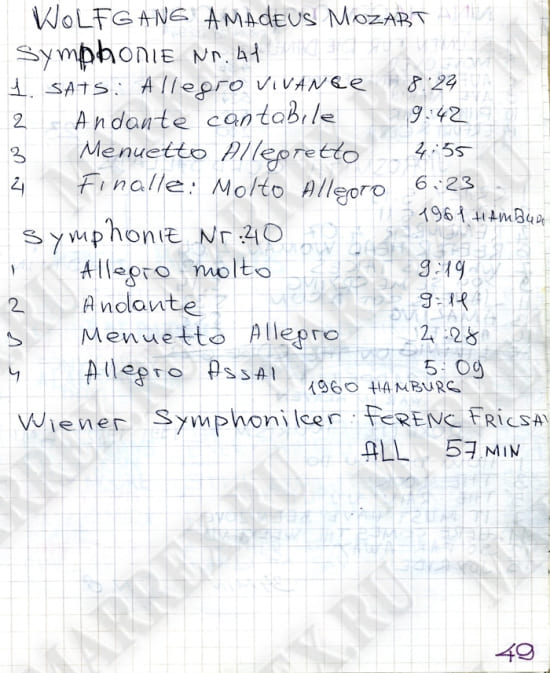 WOLFGANG AMADEUS MOZART
Symphonie Nr. 41
1. SATS: Allegro VIVANCE 8:24
2 Andante cantabile 9:42
3 Menuetto Allegretto 4:55
4 Finalle: Molto Allegro 6:23
1961 HAMBURG
Symphonie Nr:40
1 Allegro molto 9:19
2 Andante 9:11
3 Menuetto Allegro 4:28
4 Allegro Assai 5:09
1960 HAMBURG
Wiener Symphoniker. FERENC FRICSAI
ALL 57 MIN
MARREX.RU
49